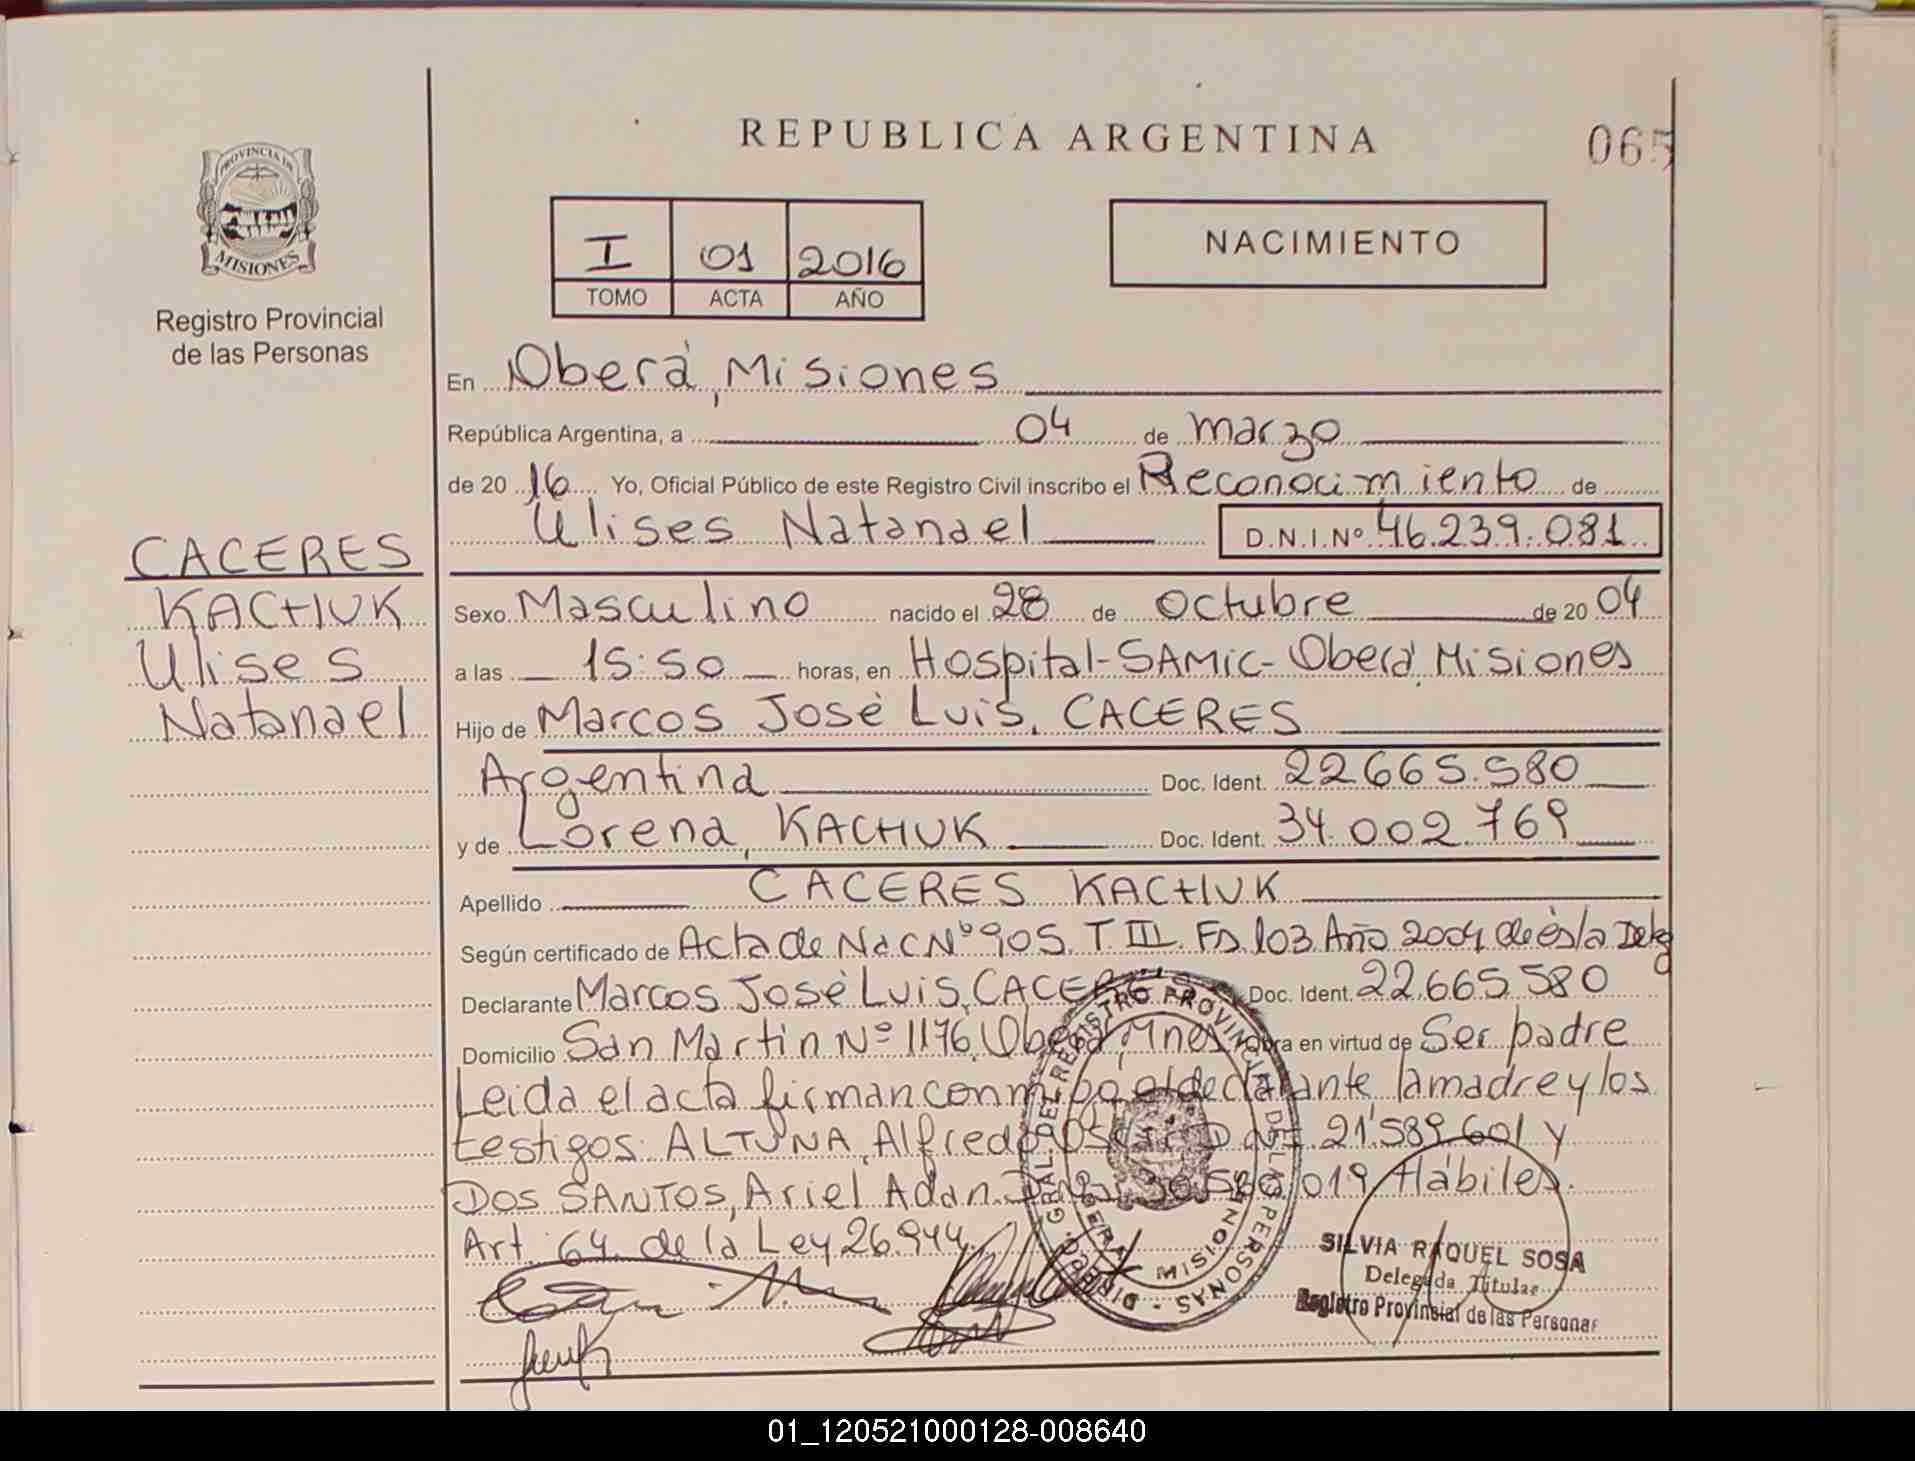 REPUBLICA ARGENTINA
065
PROVINCIA DE
MISIONES
Registro Provincial
de las Personas
I 01 2016
TOMO ACTA AÑO
NACIMIENTO
En Oberá, Misiones
República Argentina, a 04 de marzo
de 20 16 Yo, Oficial Público de este Registro Civil inscribo el Reconocimiento de
Ulises Natanael D.N.I.Nº 46.239.081
CACERES
KACHUK
Ulises
Natanael
Sexo Masculino nacido el 28 de Octubre de 20 04
a las 15:50 horas, en Hospital-SAMIC-Oberá, Misiones
Hijo de Marcos José Luis, CACERES
Argentina Doc. Ident. 22.665.580
y de Lorena, KACHUK Doc. Ident. 34.002.769
Apellido CACERES KACHUK
Según certificado de Acta de Nac Nº 905. T III. Fº 103 Año 2004 de ésta Deleg
Declarante Marcos José Luis, CACERES Doc. Ident. 22.665.580
Domicilio San Martin Nº 1176, Oberá, Mnes Obra en virtud de Ser padre
Leida el acta firman conmigo el declarante la madre y los
testigos: ALTUNA, Alfredo D.N.I. 21.589.601 y
DOS SANTOS, Ariel Adan. 019 Hábiles.
Art. 64 de la Ley 26.944.
DIREC. GRAL DE REGISTRO PROVINCIAL DE LAS PERSONAS
OBERA - MISIONES
SILVIA RAQUEL SOSA
Delegada Titular
Registro Provinsial de las Personas
01_120521000128-008640